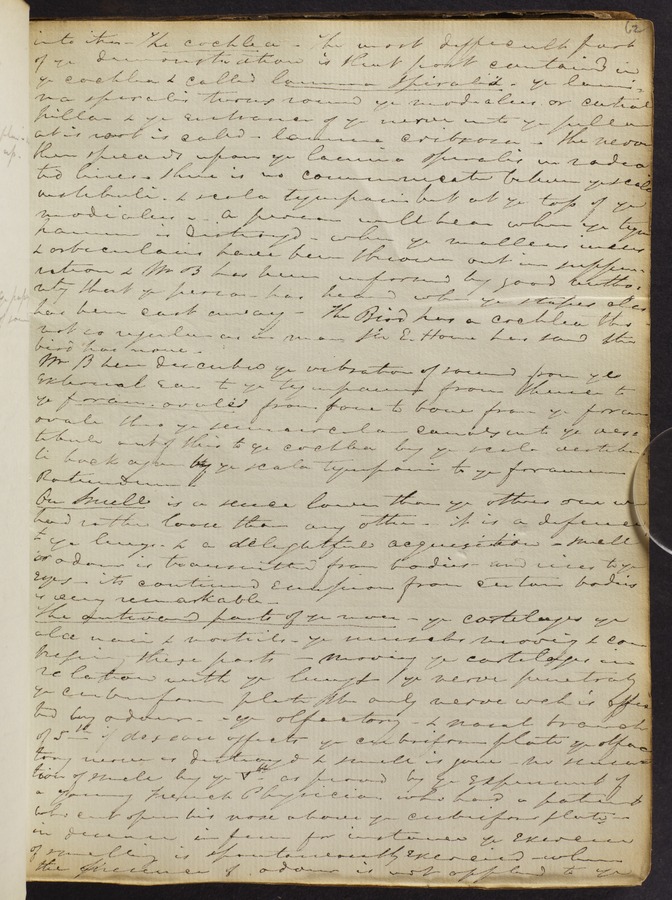 62
into this - The cochlea - The most difficult part
of ye demonstration is that part contained in
ye cochlea & called lamina spiralis - ye lami-
na spiralis turns round ye modiolus or central
pillar & ye entrance of ye nerve into ye pillar
at is root is called - lamina cribrosa - The nerve
then spreads upon ye lamina spiralis in radia
ted lines - there is no communicate between ye scala
vestibuli - & scala tympani but at ye top of ye
modiolus - a person will hear when ye tym
panum is destroyd - when ye malleus incus
& orbiculare have been thrown out in suppu
ration & Mr B has been informed by good autho-
rity that ye person has heard when ye stapes also
has been cast away - The Bird has a cochlea tho
not so regular as in man Sir E. Home has said the
bird has none -
Mr B then describes ye vibration of sound from ye
External Ear to ye tympanum from thence to
ye foram. ovale from bone to bone from ye foram
ovale thro ye semicircular canals into ye vesti
bule out of this to ye cochlea by ye scala vestibu
li back again by ye scala tympani to ye foramen
Rotundum
On Smell is a sense lower than ye others one we
had rather loose than any other - it is a defence
to ye lungs & a delightful acquisition - smell
or odour is transmitted from bodies and rises to ye
Eyes - its continued Emission from certain bodies
is very remarkable -
The outward parts of ye nose - ye cartilages ye
alæ nasi & nostrils - ye muscles moving & com
these parts - moving ye cartilages in
relation with ye lungs ye nerve penetrates
ye cribriform plate the only nerve wch is affec
ted by odour - ye olfactory - & nasal branch
of 5th if disease affects ye cribriform plate ye olfac
tory nerve is destroyd & smell is gone - no sensa
tion of smell by ye Vth as proved by ye Experiment of
a young French Physician who had a patient
who cut open his nose above ye cribriform plate -
in for instance ye Exercise
of smelling is spontaneously Exercised when
the presence of odour is not applied to ye